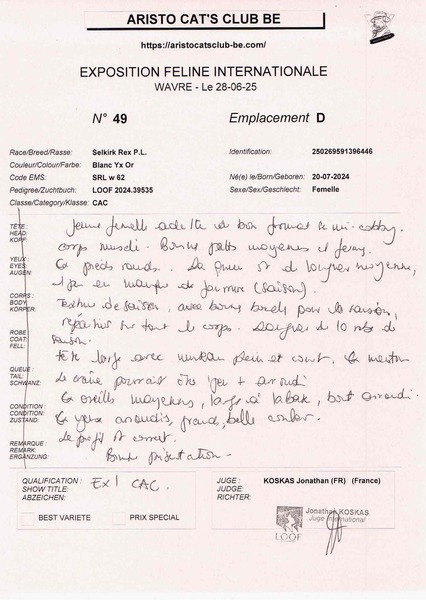 ARISTO CAT'S CLUB BE
https://aristocatsclub-be.com/
EXPOSITION FELINE INTERNATIONALE
WAVRE - Le 28-06-25
N° 49 Emplacement D
Race/Breed/Rasse: Selkirk Rex P.L. Identification: 250269591396446
Couleur/Colour/Farbe: Blanc Yx Or
Code EMS: SRL w 62 Né(e) le/Born/Geboren: 20-07-2024
Pedigree/Zuchtbuch: LOOF 2024.39535 Sexe/Sex/Geschlecht: Femelle
Classe/Category/Klasse: CAC
TÊTE: HEAD: KOPF:
Jeune femelle adulte de bon format mi-cobby.
corps musclé. Bonne patte moyennes et ferme
YEUX: EYES: AUGEN:
pieds ronds. La queue est de longueur moyenne,
manque de fourrure (saison).
CORPS: BODY: KÖRPER:
Texture de saison, avec bonne boucle pour la saison,
répartie sur tout le corps. Longueur de la robe de
ROBE: COAT: FELL:
saison.
Tête large avec museau plein et court. menton
QUEUE: TAIL: SCHWANZ:
Le crâne pourrait être + arrondi
oreilles moyennes, large à la base, bout arrondi.
CONDITION: CONDITION: ZUSTAND:
yeux arrondis, grands, belle couleur.
Le profil est correct.
REMARQUE: REMARK: ERGÄNZUNG:
Bonne présentation -
QUALIFICATION: SHOW TITLE: ABZEICHEN: Ex 1 CAC.
JUGE: JUDGE: RICHTER: KOSKAS Jonathan (FR) (France)
BEST VARIETE PRIX SPECIAL
Jonathan KOSKAS
Juge International
LOOF